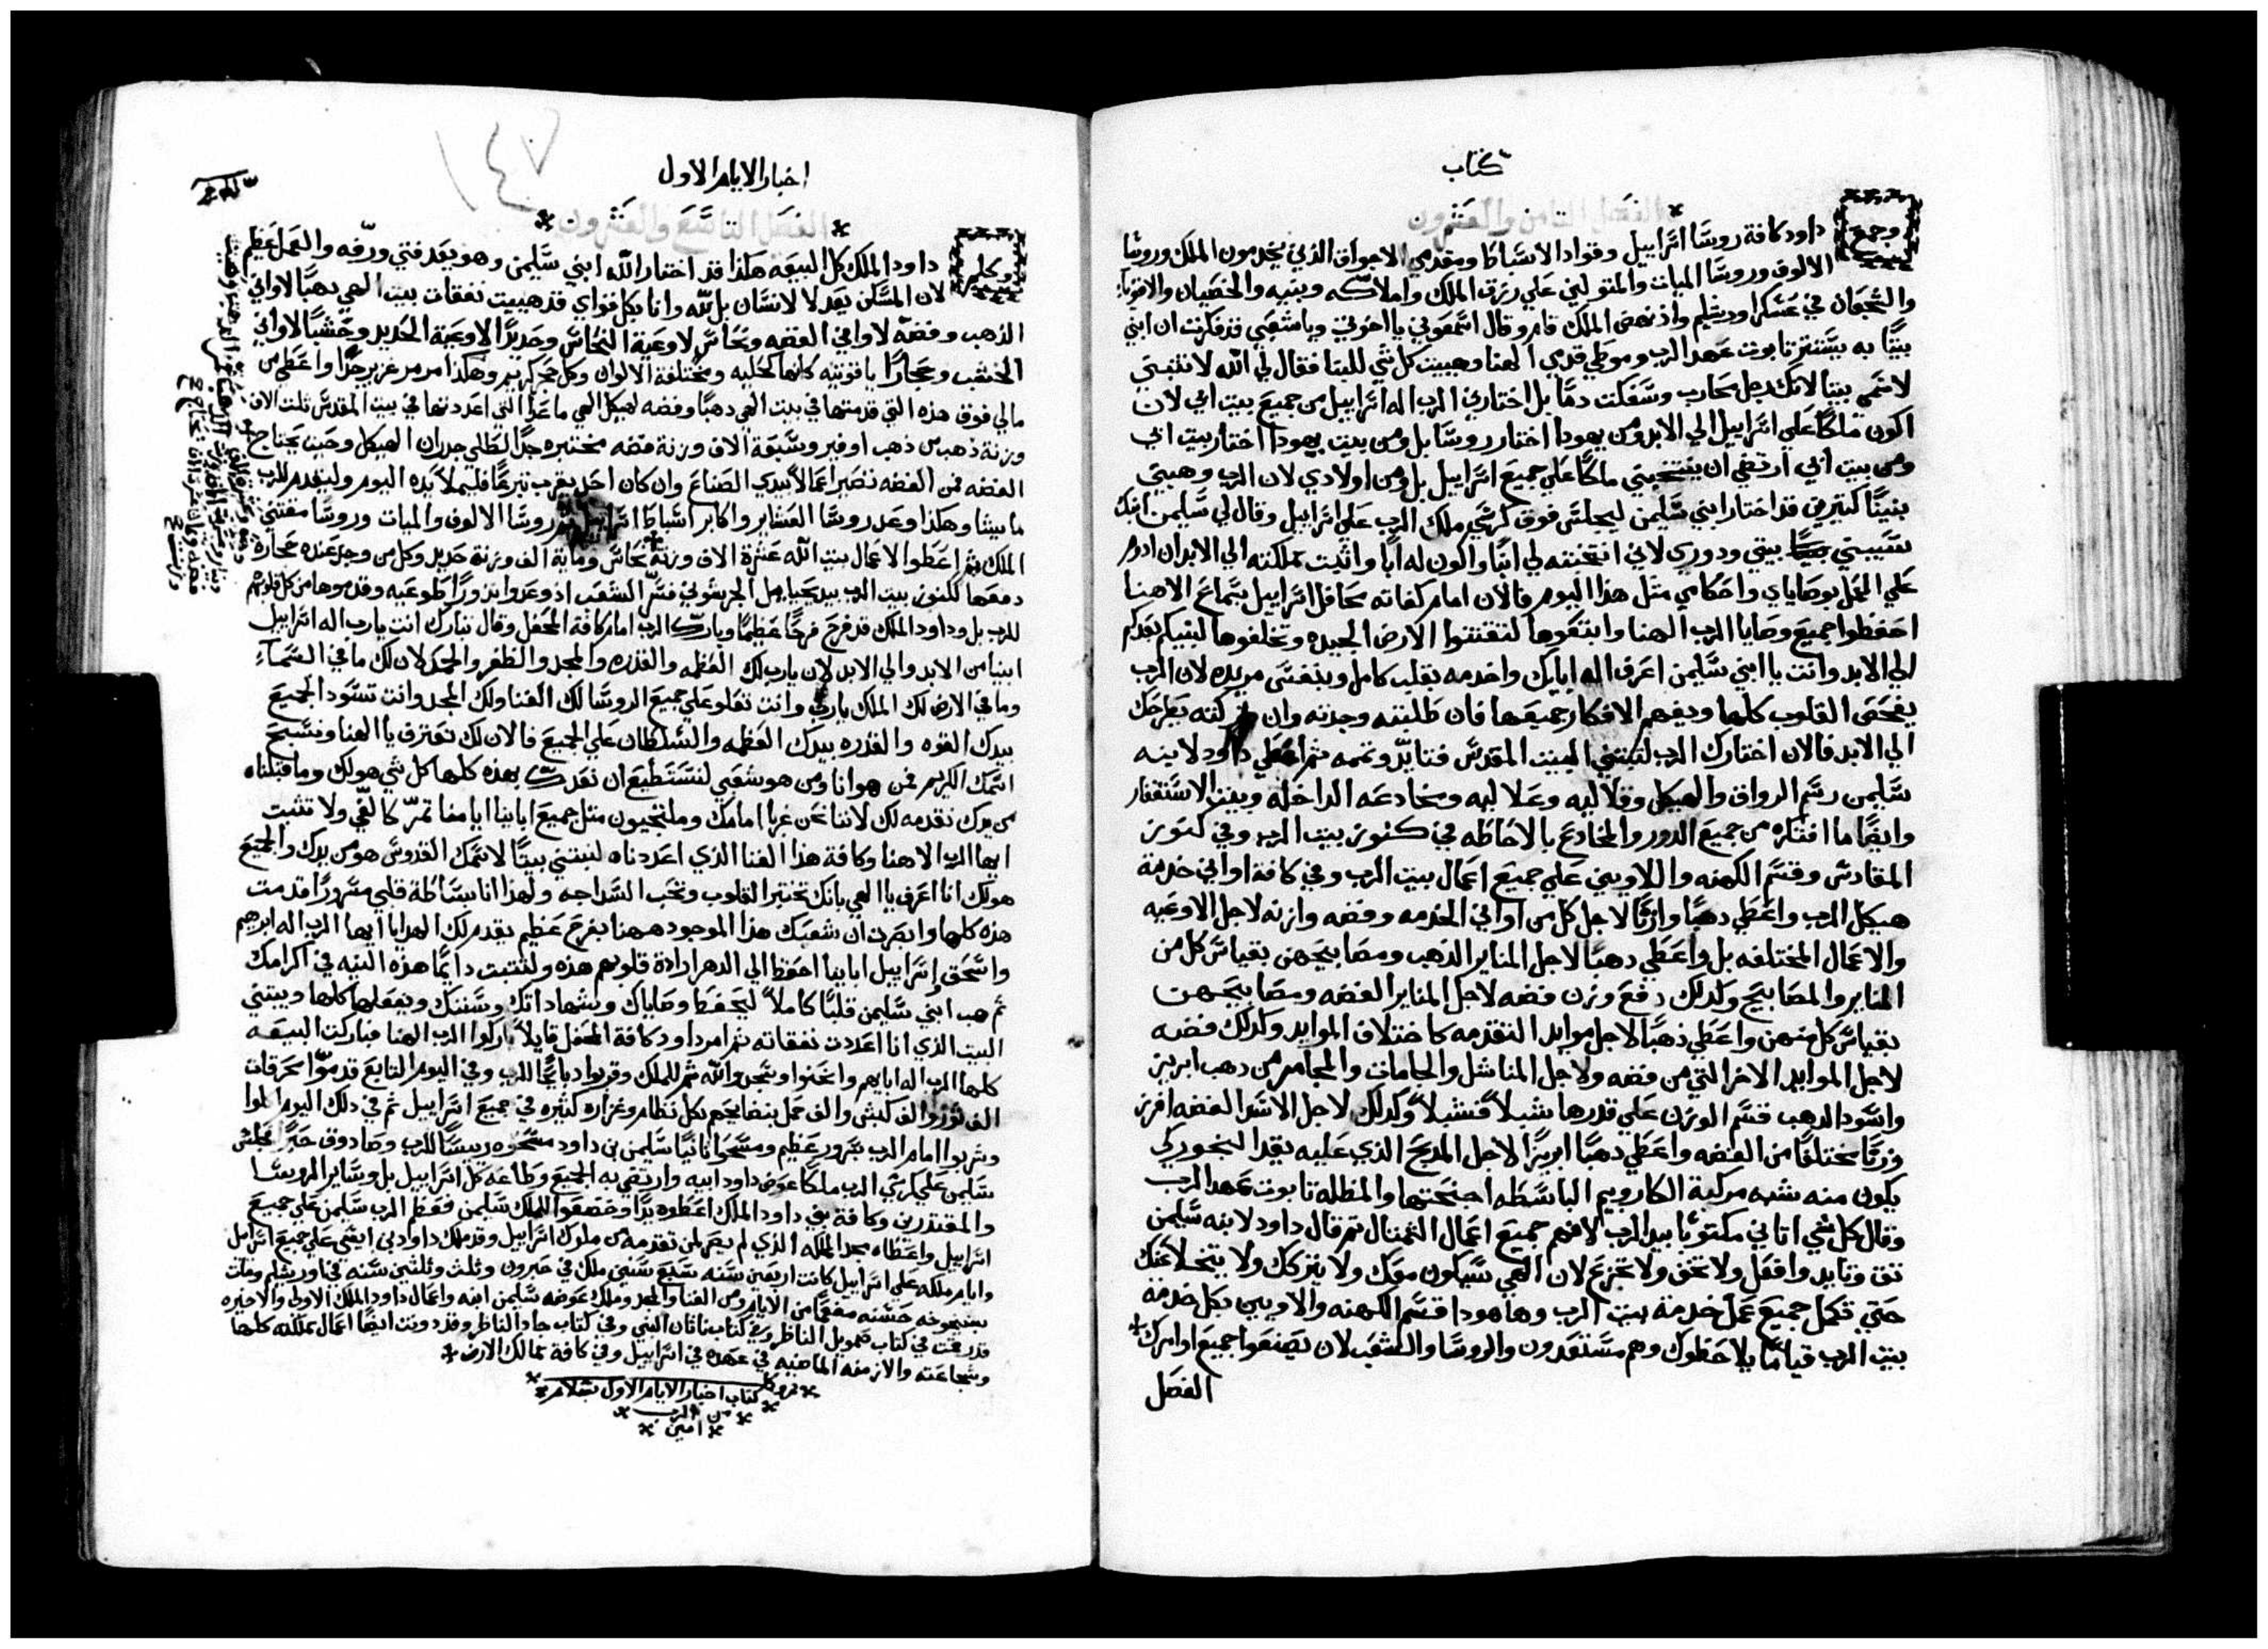 كتاب
الفصل الثامن والعشرون
وجمع داود كافة روسا اسراييل وقواد الاسباط ومقدمي الاجواق الذين يخدمون الملك وروسا
الالوف وروسا الميات والمتولين علي رزق الملك واملاكه وبنيه والخصيان والاقويا
والشجعان في عسكر اورشليم واذ نهض الملك قام وقال اسمعوني يا اخوتي ويا شعبي قد فكرت ان ابني
بيتًا به يستتر تابوت عهد الرب وموطي قدمي الهنا وهييت كل شي للبنا فقال لي الله لا تبتني
لاسمي بيتا لانك رجل محارب وسفكت دمًا بل اختارني الرب اله اسراييل من جميع بيت ابي لان
اكون ملكًا علي اسراييل الي الابد ومن يهودا اختار روسا بل ومن بيت يهودا اختار بيت ابي
ومن بيت ابي ارتضي ان ينتخبني ملكًا علي جميع اسراييل بل ومن اولادي لان الرب وهبني
بنينًا كتيرين قد اختار ابني سليمن ليجلس فوق كرسي ملك الرب علي اسراييل وقال لي سليمن ابنك
سيبني بيتي ودوري لاني انتخبته لي ابنًا واكون له ابًا واثبت مملكته الي الابد ان ادوم
علي العمل بوصاياي واحكامي مثل هذا اليوم فالان امام كفاته محافل اسراييل بسماع الاهنا
احفظوا جميع وصايا الرب الهنا وابتغوها لتقتنوا الارض الجيده وتخلفوها لبنيكم بعدكم
الي الابد وانت يا ابني سليمن اعرف اله ابايك واخدمه بقلب كامل وبنفس مريده لان الرب
يفحص القلوب كلها ويفهم الافكار جميعها فان طلبته وجدته وان تركته يطرحك
الي الابد فالان اختارك الرب لتبتني البيت المقدس فتايّد وتممه ثم اعطي داود لابنه
سليمن رسم الرواق والهيكل وقلاليه وعلاليه ومخادعه الداخله وبيت الاستغفار
وايضًا ما افتكره من جميع الدور والمخادع بالاحاطه في كنوز بيت الرب وفي كنوز
المقادس وقسم الكهنه واللاويين علي جميع اعمال بيت الرب وفي كافة اواني خدمة
هيكل الرب واعطي دهبًا وازنًا لاجل كل من اواني الخدمه وفضه وازنه لاجل الاوعيه
والاعمال المختلفه بل واعطي دهبًا لاجل المناير الذهب ومصابيحهن بقياس كل من
المناير والمصابيح وكذلك دفع وزن فضه لاجل المناير الفضه ومصابيحهن
بقياس كل منهن واعطي ذهبًا لاجل موايد التقدمه كاختلاف الموايد وكذلك فضه
لاجل الموايد الاخر التي من فضه ولاجل المناشل والجامات والمجامر من دهب ابريز
واسود الدهب قسم الوزن علي قدرها شبلاً فشبلاً وكدلك لاجل الاشد الفضه افرز
وزنًا مختلفًا من الفضه واعطي دهبًا ابريزًا لاجل المدبح الذي عليه يقد البخور كي
يكون منه شبه مركبة الكاروبيم الباسطه اجنحتها والمظلله تابوت عهد الرب
وقال كل شي اتاني مكتوبًا بيد الرب لافهم جميع اعمال التمتال ثم قال داود لابنه سليمن
تق وتايد وافعل ولا تخف ولا تجزع لان الهي سيكون معك ولا يتركك ولا يتخلا عنك
حتي تكمل جميع عمل خدمة بيت الرب وها هودا قسم الكهنه واللاويين بكل خدمة
بيت الرب قيامًا يلاحظوك وهم مستعدون والروسا والشعب لان يصنعوا جميع اوامرك
الفصل
اخبار الايام الاول
١٤٧
الفصل التاسع والعشرون
وكلم داود الملك كل البيعه هكذا قد اختار الله ابني سليمن وهو بعد فتي ورقه والعمل عظيم
لان المسكن يعد لا لانسان بل لله وانا بكل قواي قد هييت نفقات بيت الهي دهبًا لاواني
الذهب وفضه لاواني الفضه ونحاس لاوعية النحاس وحديدًا لاوعية الحديد وخشبًا لاواني
الخشب وحجارًا ياقوتيه كانها كحليه ومختلفة الالوان وكل حجر كريم وهكذا مرمر غزير جدًا واعطي من
مالي فوق هذه التي قدمتها في بيت الهي دهبًا وفضه لهيكل الهي ما عدا التي اعددتها في بيت المقدس ثلث الاف
وزنة ذهب من ذهب اوفير وسبعة الاف وزنة فضه مختبره جدًا لطلي جدران الهيكل وحيث يحتاج
الفضه فمن الفضه تصير اعمالاً بيدي الصناع وان كان احد يقرب تبرعًا فليملا يده اليوم وليقدم للرب
ما يشا وهكذا وعد روسا العشاير واكابر اسباط اسراييل وروسا الالوف والميات وروسا مقتني
الملك ثم اعطوا لاعمال بيت الله عشرة الاف وزنة نحاس وماية الف وزنة حديد وكل من وجد عنده حجاره
دفعها لكنوز بيت الرب بيد يحيايل الجرشوني فسرّ الشعب اذ وعدوا نذورًا طوعيه وقدموها من كل قلوبهم
للرب بل وداود الملك قد فرح فرحًا عظيمًا وبارك الرب امام كافة المحفل وقال تبارك انت يا رب اله اسراييل
ابينا من الابد والي الابد لان يا رب لك العظمه والقدره والمجد والظفر والحمد لان لك ما في السماء
وما في الارض لك الملك يا رب وانت تعلو علي جميع الروسا لك الغنا ولك المجد وانت تسود الجميع
بيدك القوه والقدره بيدك العظمه والسلطان علي الجميع فالان لك نعترف يا الهنا ونسبح
اسمك الكريم فمن هو انا ومن هو شعبي لنستطيع ان نعدك بهذه كلها كل شي هو لك وما قبلناه
من يدك نقدمه لك لاننا نحن غربا امامك وملتجيون مثل جميع اباينا ايامنا تمرّ كالفي ولا تثبت
ايها الرب الاهنا وكافة هذا الغنا الذي اعددناه لنبتني بيتًا لاسمك القدوس هو من يدك والجميع
هو لك انا اعرف يا الهي بانك تختبر القلوب وتحب السداجه ولهذا انا بساطة قلبي مسرورًا قدمت
هذه كلها وابصرت ان شعبك هذا الموجود ههنا بفرح عظيم يقدم لك الهدايا ايها الرب اله ابرهيم
واسحق واسراييل اباينا احفظ الي الدهر ارادة قلوبهم هذه ولتثبت دايمًا هذه النيه في اكرامك
ثم هب ابني سليمن قلبًا كاملاً ليحفظ وصاياك وشهاداتك وسننك ويفعلها كلها ويبتني
البيت الذي انا اعددت نفقاته ثم امر داود كافة المحفل قايلاً باركوا الرب الهنا فباركت البيعه
كلها الرب اله ابايهم وانحنوا وسجدوا لله ثم للملك وقربوا دبايحًا للرب وفي اليوم التابع قدموا محرقات
الف ثور والف كبش والف حمل بنضايحهم بكل نظام وغزاره كثيره في جميع اسراييل ثم في دلك اليوم اكلوا
وشربوا امام الرب بسرور عظيم ومسحوا ثانيًا سليمن بن داود مسحوه رييسًا للرب وصادوق حبرًا فجلس
سليمن علي كرسي الرب ملكًا عوض داود ابيه وارتضي به الجميع وطاعه كل اسراييل بل وساير الروسا
والمقتدرين وكافة بني داود الملك اعطوه يدًا وخضعوا للملك سليمن فعظم الرب سليمن علي جميع
اسراييل واعطاه مجد الملكه الذي لم يصر لمن تقدمه من ملوك اسراييل وقد ملك داود بن ايشي علي جميع اسراييل
وايام ملكه علي اسراييل كانت اربعين سنه سبع سنين ملك في حبرون وثلث وثلثين سنه في اورشليم ومات
بشيخوخه حسنه مفعمًا من الايام ومن الغنا والمجد وملك عوضه سليمن ابنه واعمال داود الملك الاولي والاخيره
قد رقمت في كتاب صمويل الناظر وفي كتاب ناثان النبي وفي كتاب جاد الناظر وقد دونت ايضًا اعمال مملكته كلها
وشجاعته والازمنه الماضيه في عهده في اسراييل وفي كافة ممالك الارض
كتاب اخبار الايام الاول بسلام
من الرب
امين